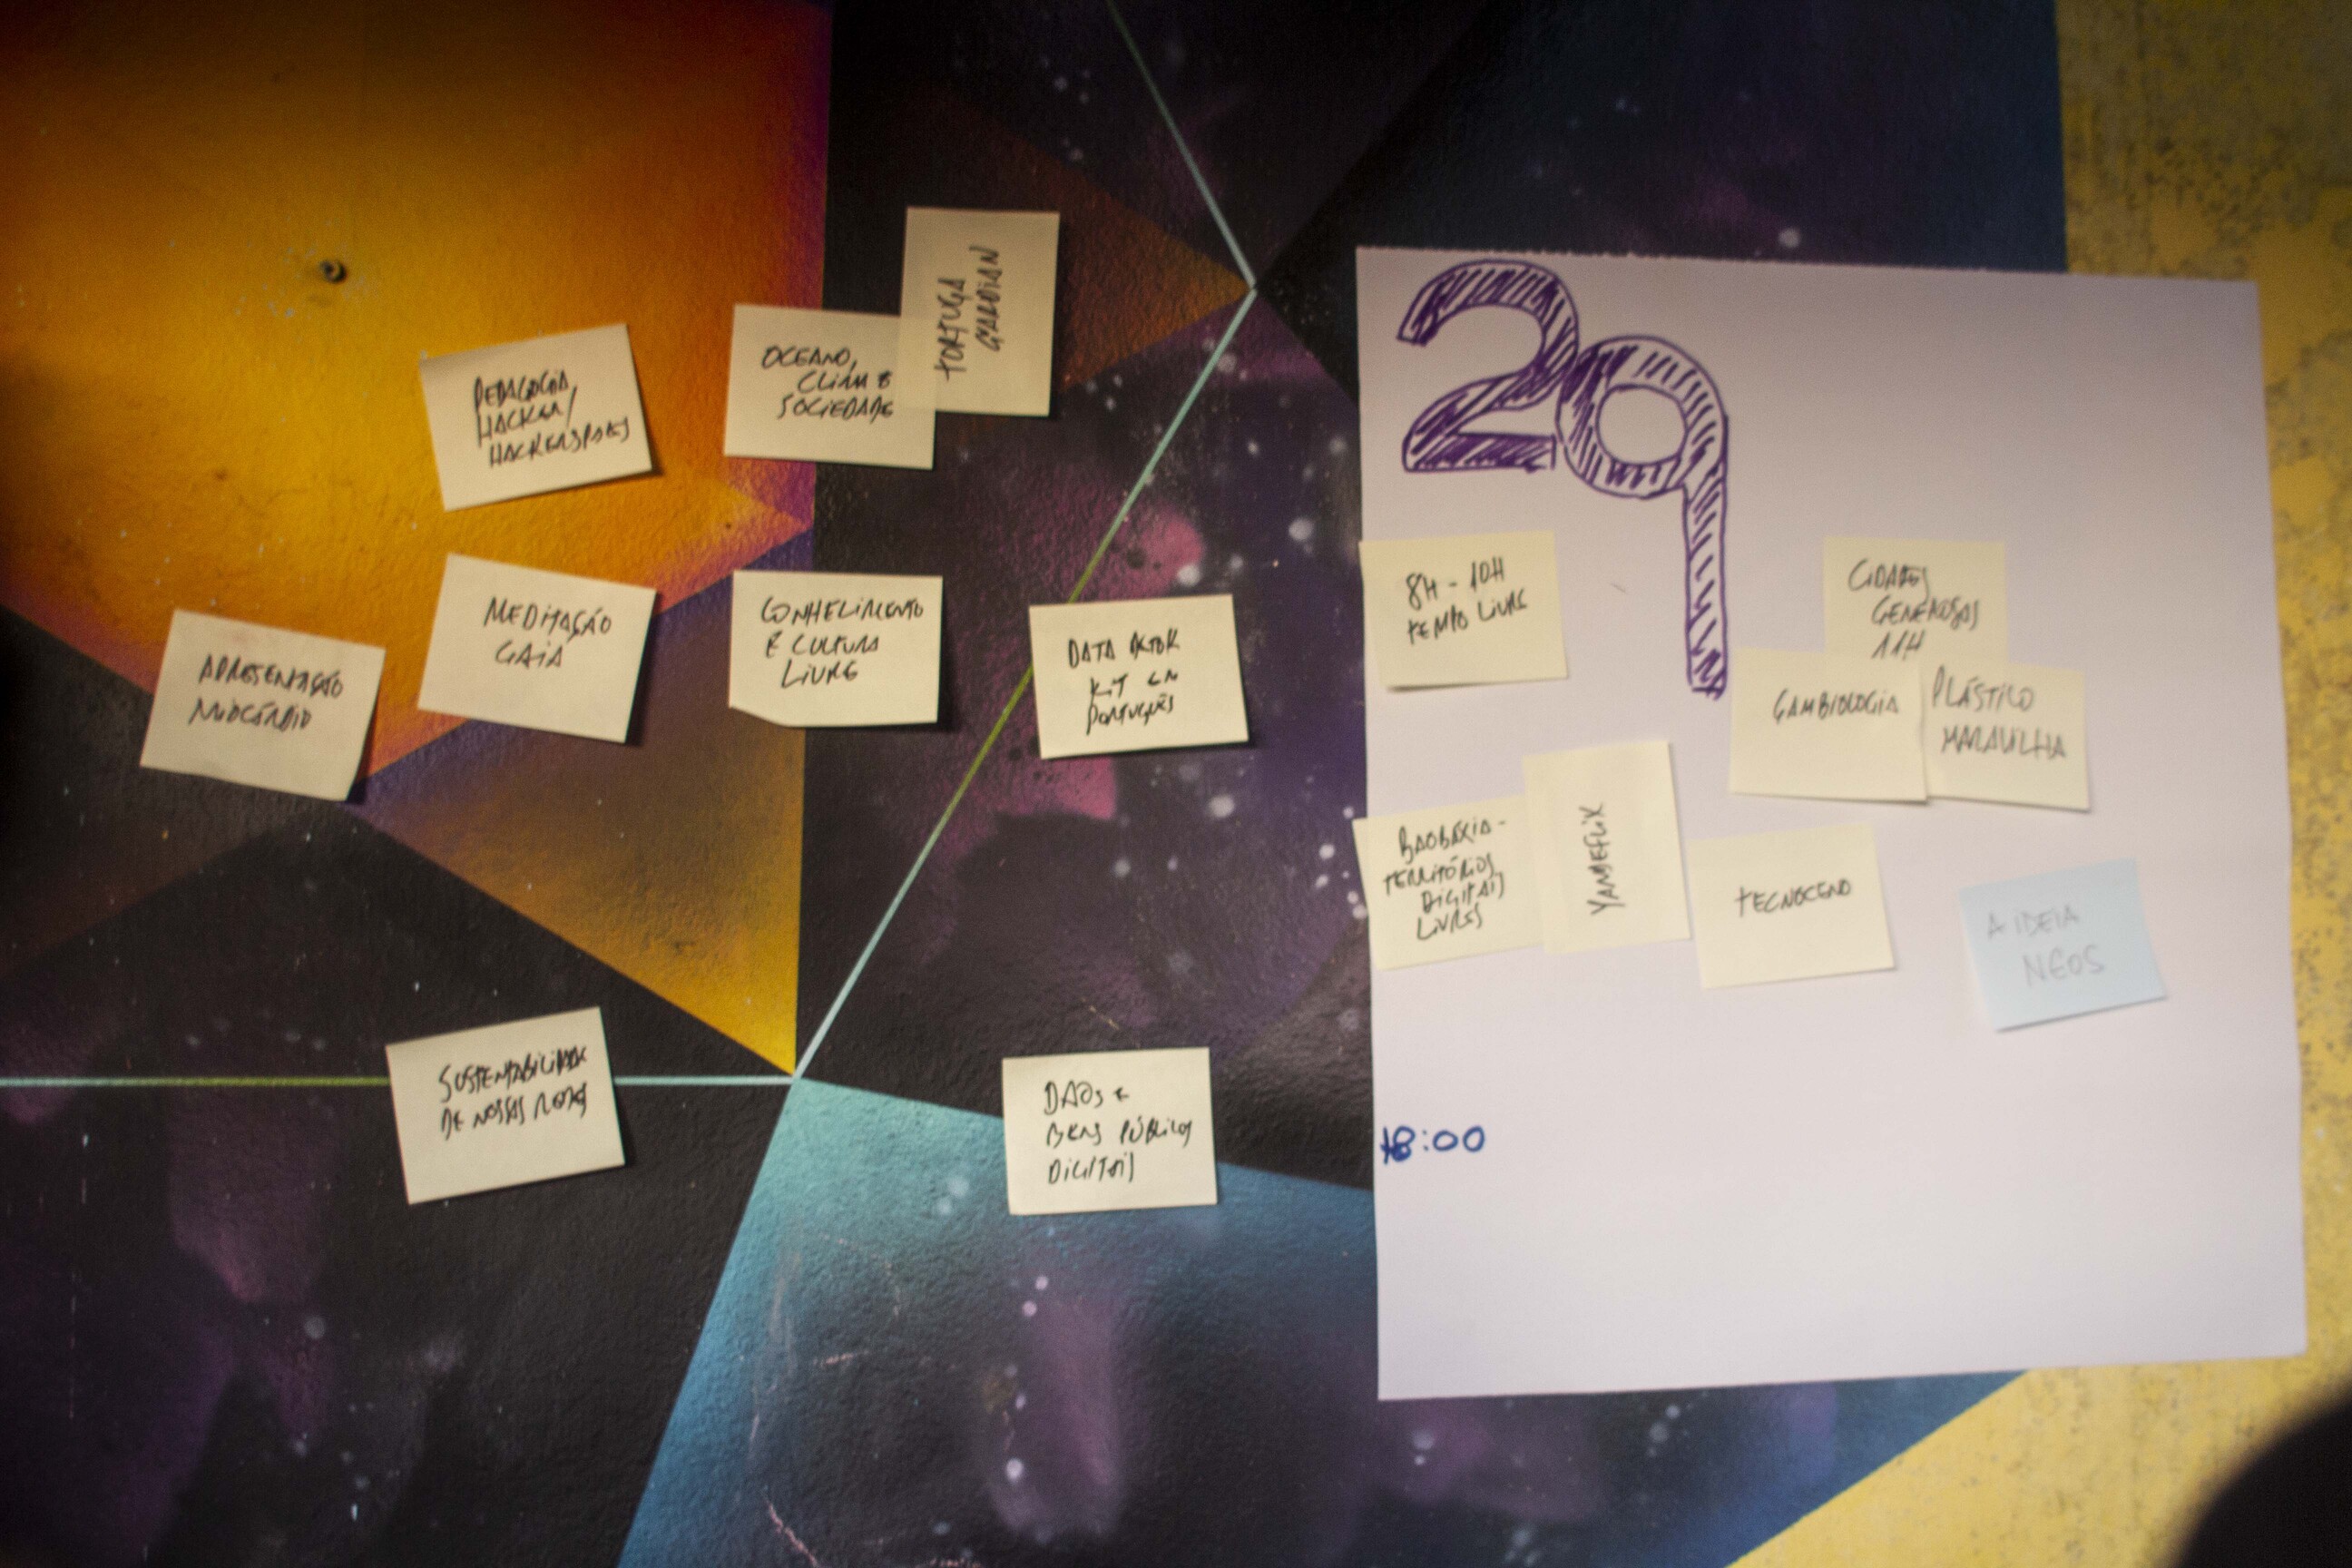 PEDAGOGIA
HACKER /
HACKERSPACES
OCEANO,
CLIMA E
SOCIEDADE
TORTUGA
GARDIAN
APRESENTAÇÃO
MEDITAÇÃO
GAIA
CONHECIMENTO
E CULTURA
LIVRE
DATA DETOX
KIT EM
PORTUGUÊS
SUSTENTABILIDADE
DE NOSSAS REDES
DAOs E
BENS PÚBLICOS
DIGITAIS
29
8H - 10H
TEMPO LIVRE
CIDADES
GENEROSAS
11H
GAMBIOLOGIA
PLÁSTICO
MARAVILHA
BAOBÁXIA -
TERRITÓRIOS
DIGITAIS
LIVRES
YANDEFLIX
TECNOCENO
A IDEIA
NEOS
18:00